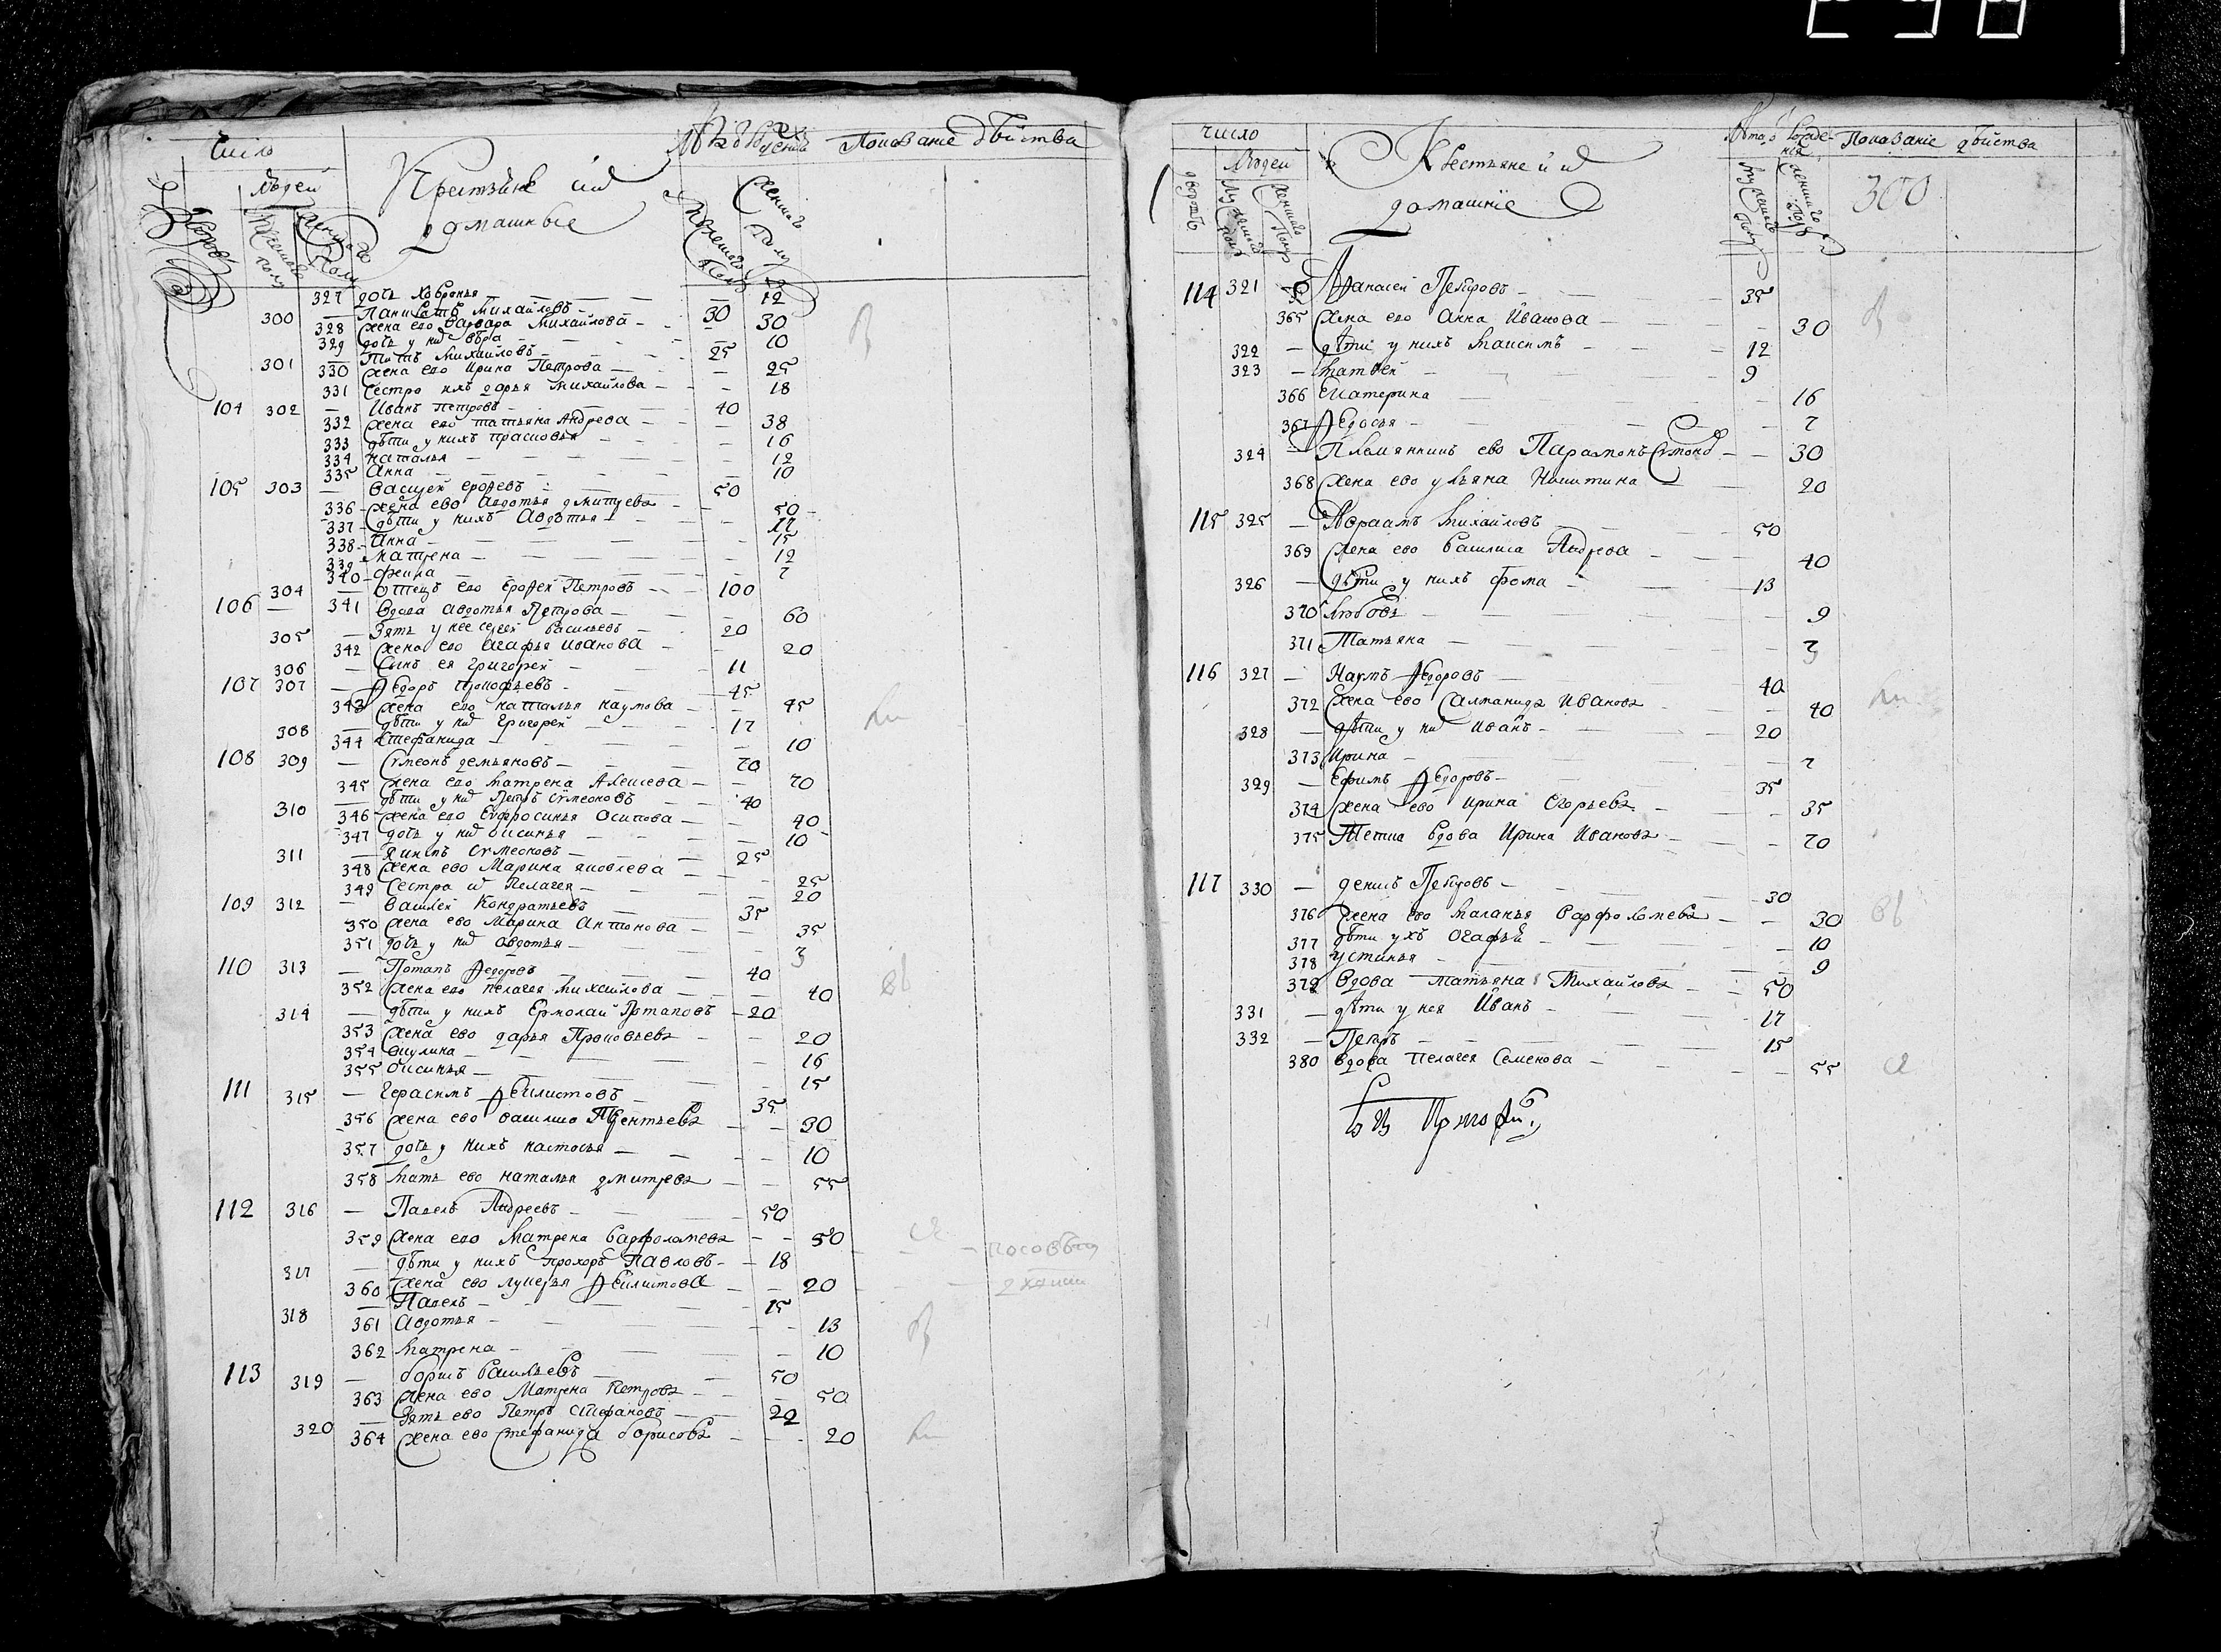 Число
Людей
Крестьяне ихъ
домашные
Показаніе дѣйства
327 дочь Ховронья — 12
300 — Панкратъ Михайловъ — 30
328 жена ево Варвара Михайлова — 30
329 дочь у них вѣра — 10
301 — Титъ Михайловъ — 25
330 жена ево Ирина Петрова — 25
331 Сестра ихъ дарья Михайлова — 18
104 302 — Иванъ петровъ — 40
332 жена ево татьяна Андрева — 38
333 дѣти у нихъ прасковья — 16
334 наталья — 12
335 Анна — 10
105 303 — Василей ерофевъ — 50
336 жена ево Авдотья дмитрева — 50
337 дѣти у нихъ Авдотья — 17
338 Анна — 15
339 Матрена — 12
340 фекла — 7
304 — отецъ ево Ерофей Петровъ — 100
106 — 341 Вдова авдотья Петрова — 60
305 — Зять у нее сергей Васильевъ — 20
342 жена ево Агафья иванова — 20
306 — Сынъ ея григорей — 11
107 307 — Ѳедоръ прокофьевъ — 45
343 жена ево наталья наумова — 45
308 — дѣти у них Григорей — 17
344 Стефанида — 10
108 309 — Сѵмеонъ демьяновъ — 70
345 жена ево матрена Алексева — 70
310 — дѣти у них Петръ сѵмеоновъ — 40
346 жена ево Ефросинья Осипова — 40
347 дочь у них оксинья — 10
311 — якимъ Сѵмеоновъ — 25
348 жена ево Марина яковлева — 25
349 Сестра их Пелагея — 20
109 312 — Василей Кондратьевъ — 35
350 жена ево Марина Антонова — 35
351 дочь у них авдотья — 3
110 313 — Потапъ Ѳедоровъ — 40
352 жена ево пелагея михайлова — 40
314 — дѣти у нихъ Ермолай Потаповъ — 20
353 жена ево дарья Прокофьева — 20
354 окулина — 16
355 оксинья — 15
111 315 — Герасимъ Ѳеклистовъ — 35
356 жена ево василиса Терентьева — 30
357 дочь у нихъ настасья — 10
358 мать ево наталья дмитрева — 55
112 316 — Павелъ Андреевъ — 50
359 жена ево Матрена Варфоломева — 50
317 — дѣти у нихъ прохоръ Павловъ — 18
360 жена ево лукерья Ѳеклистова — 20
318 — Павелъ — 15
361 Авдотья — 13
362 матрена — 10
113 319 — борисъ Васильевъ — 50
363 жена ево Матрена Петрова — 50
320 — Зять ево Петръ Стефановъ — 22
364 жена ево Стефанида борисова — 20
Число
Людей
Крестьяне и их
домашніе
Показаніе дѣйства
300
114 321 — Афанасей Петровъ — 35
365 жена ево Анна Иванова — 30
322 — дѣти у нихъ максимъ — 12
323 — матвей — 9
366 Екатерина — 16
367 Ѳедосья — 7
324 — Племянникъ ево Парамонъ — 30
368 жена ево ульяна Никитина — 20
115 325 — Авраамъ михайловъ — 50
369 жена ево Василиса Андрева — 40
326 — дѣти у нихъ фома — 13
370 любовь — 9
371 Татьяна — 3
116 327 — Наумъ Ѳедоровъ — 40
372 жена ево Саломанида Иванова — 40
328 — дѣти у них иванъ — 20
373 Ирина — 7
329 — Ефимъ Ѳедоровъ — 35
374 жена ево ирина Егорьева — 35
375 Тетка вдова Ирина Иванова — 70
117 330 — денисъ Петровъ — 30
376 жена ево маланья Варфоломева — 30
377 дѣти ухъ Огафья — 10
378 устинья — 9
379 Вдова Татьяна Михайлова — 50
331 — дѣти у нея Иванъ — 17
332 — Петръ — 15
380 вдова пелагея Семенова — 55